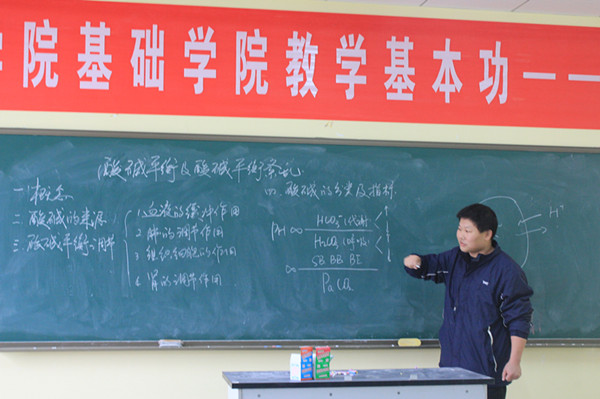 学院基础学院教学基本功——
酸碱平衡及酸碱平衡紊乱
一. 概念
二. 酸碱的来源
三. 酸碱平衡调节
1. 血液的缓冲作用
2. 肺的调节作用
3. 组织细胞的作用
4. 肾的调节作用
四. 酸碱的分类及指标
PH ∝ HCO₃⁻(代谢)
H₂CO₃(呼吸)
SB BB BE
∝ PaCO₂
H⁺